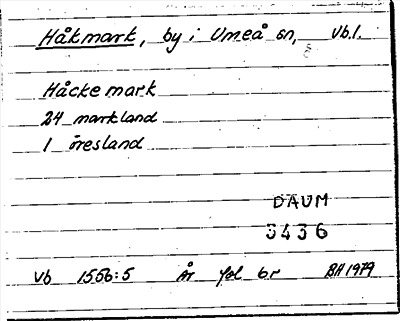 Håkmark, by i Umeå sn, Vb l.
Håcke mark
24 markland
1 öresland
DAUM
3436
Vb 1556:5 År fol br BH 1979